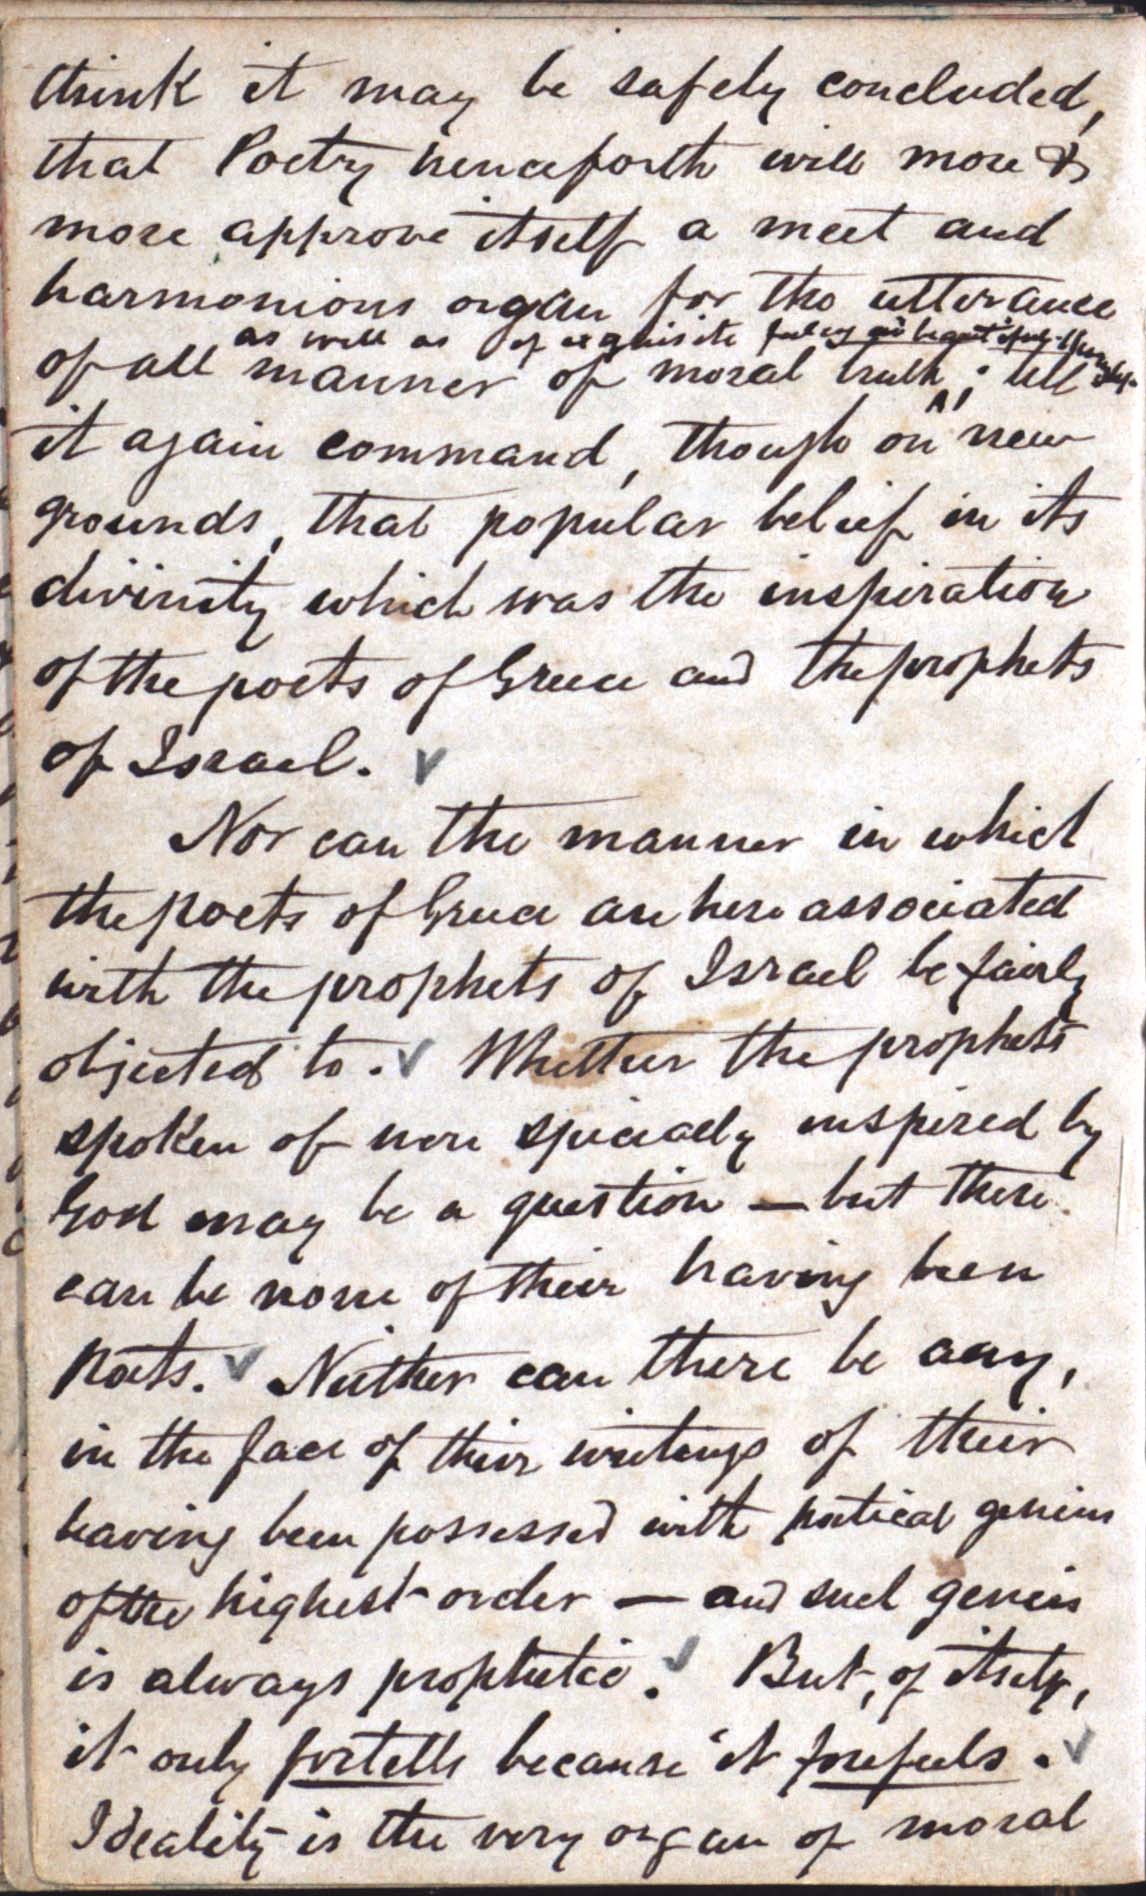 think it may be safely concluded,
that Poetry henceforth will more &
more approve itself a meet and
harmonious organ for the utterance
as well as of exquisite feeling and beautiful
of all manner of moral truth ^; till
it again command, though on new
grounds, that popular belief in its
divinity which was the inspiration
of the poets of Greece and the prophets
of Israel. ✓
Nor can the manner in which
the poets of Greece are here associated
with the prophets of Israel be fairly
objected to. ✓ Whether the prophets
spoken of were specially inspired by
God may be a question — but there
can be none of their having been
poets. ✓ Neither can there be any,
in the face of their writings of their
having been possessed with poetical genius
of the highest order — and such genius
is always prophetic. ✓ But, of itself,
it only fortells because it forefeels. ✓
Ideality is the very organ of moral